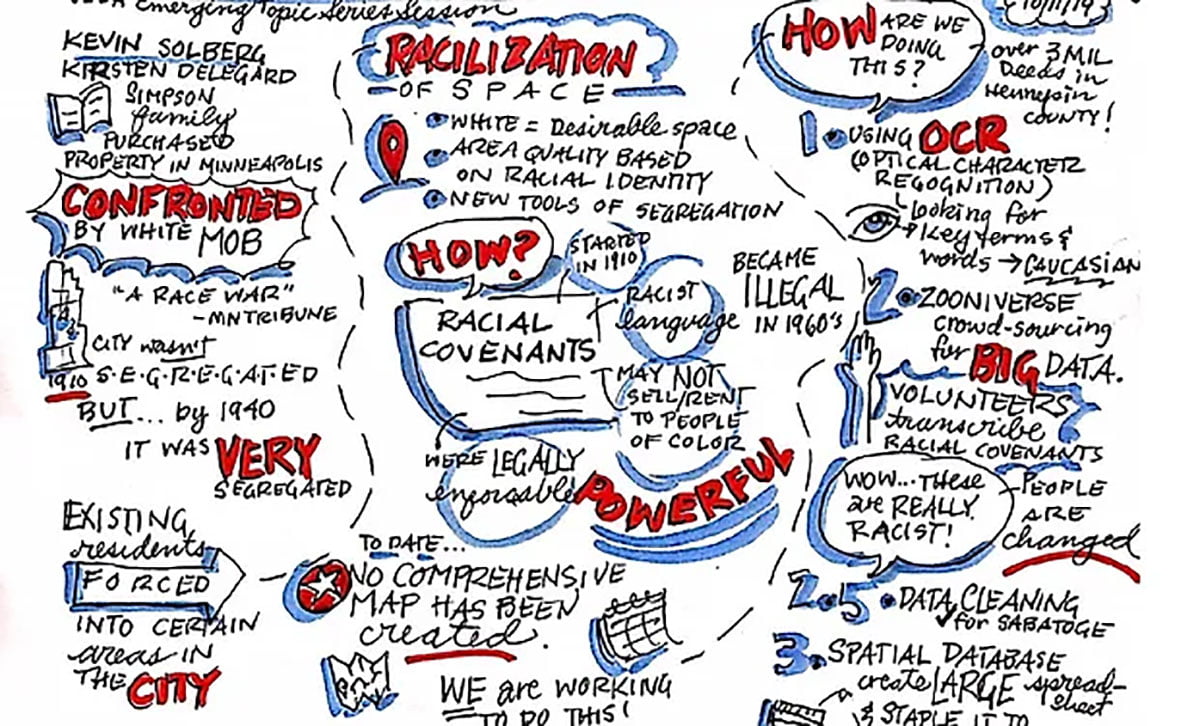 Emerging Topic Series Session
KEVIN SOLBERG
KIRSTEN DELEGARD
SIMPSON
family
PURCHASED
PROPERTY IN MINNEAPOLIS
CONFRONTED
BY WHITE MOB
"A RACE WAR"
-MNTRIBUNE
CITY wasn't
1910 S·E·G·R·E·G·A·T·E·D
BUT... by 1940
IT WAS VERY
SEGREGATED
EXISTING
residents
FORCED
INTO CERTAIN
areas IN
THE CITY
RACILIZATION
OF SPACE
WHITE = Desirable space
AREA QUALITY BASED
ON RACIAL IDENTITY
NEW TOOLS OF SEGREGATION
HOW?
STARTED
IN 1910
RACIAL
COVENANTS
RACIST
language
BECAME
ILLEGAL
IN 1960's
MAY NOT
SELL/RENT
TO PEOPLE
OF COLOR
WERE LEGALLY
enforcable
POWERFUL
TO DATE...
NO COMPREHENSIVE
MAP HAS BEEN
created.
WE are WORKING
TO DO THIS!
10/11/19
HOW ARE WE
DOING
THIS?
over 3 MIL
Deeds in
Hennepin
COUNTY!
1. USING OCR
(OPTICAL CHARACTER
RECOGNITION)
Looking for
Key terms &
words → CAUCASIAN
2. ZOONIVERSE
crowd-sourcing
for BIG DATA.
VOLUNTEERS
transcribe
RACIAL COVENANTS
WOW... These
are REALLY
RACIST!
-PEOPLE
ARE
changed
2.5 DATA CLEANING
for SABATOGE
3. SPATIAL DATABASE
create LARGE spread-
sheet
& STAPLE IT TO